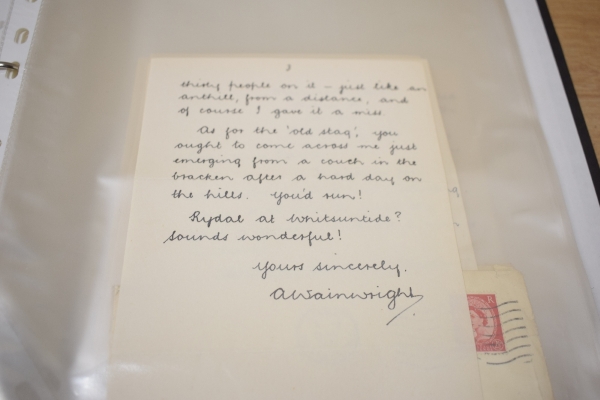 3
thirty people on it — just like an
anthill, from a distance, and
of course I gave it a miss.
As for the 'old stag', you
ought to come across me just
emerging from a couch in the
bracken after a hard day on
the hills. You'd run!
Rydal at Whitsuntide?
Sounds wonderful!
Yours sincerely,
AWainwright